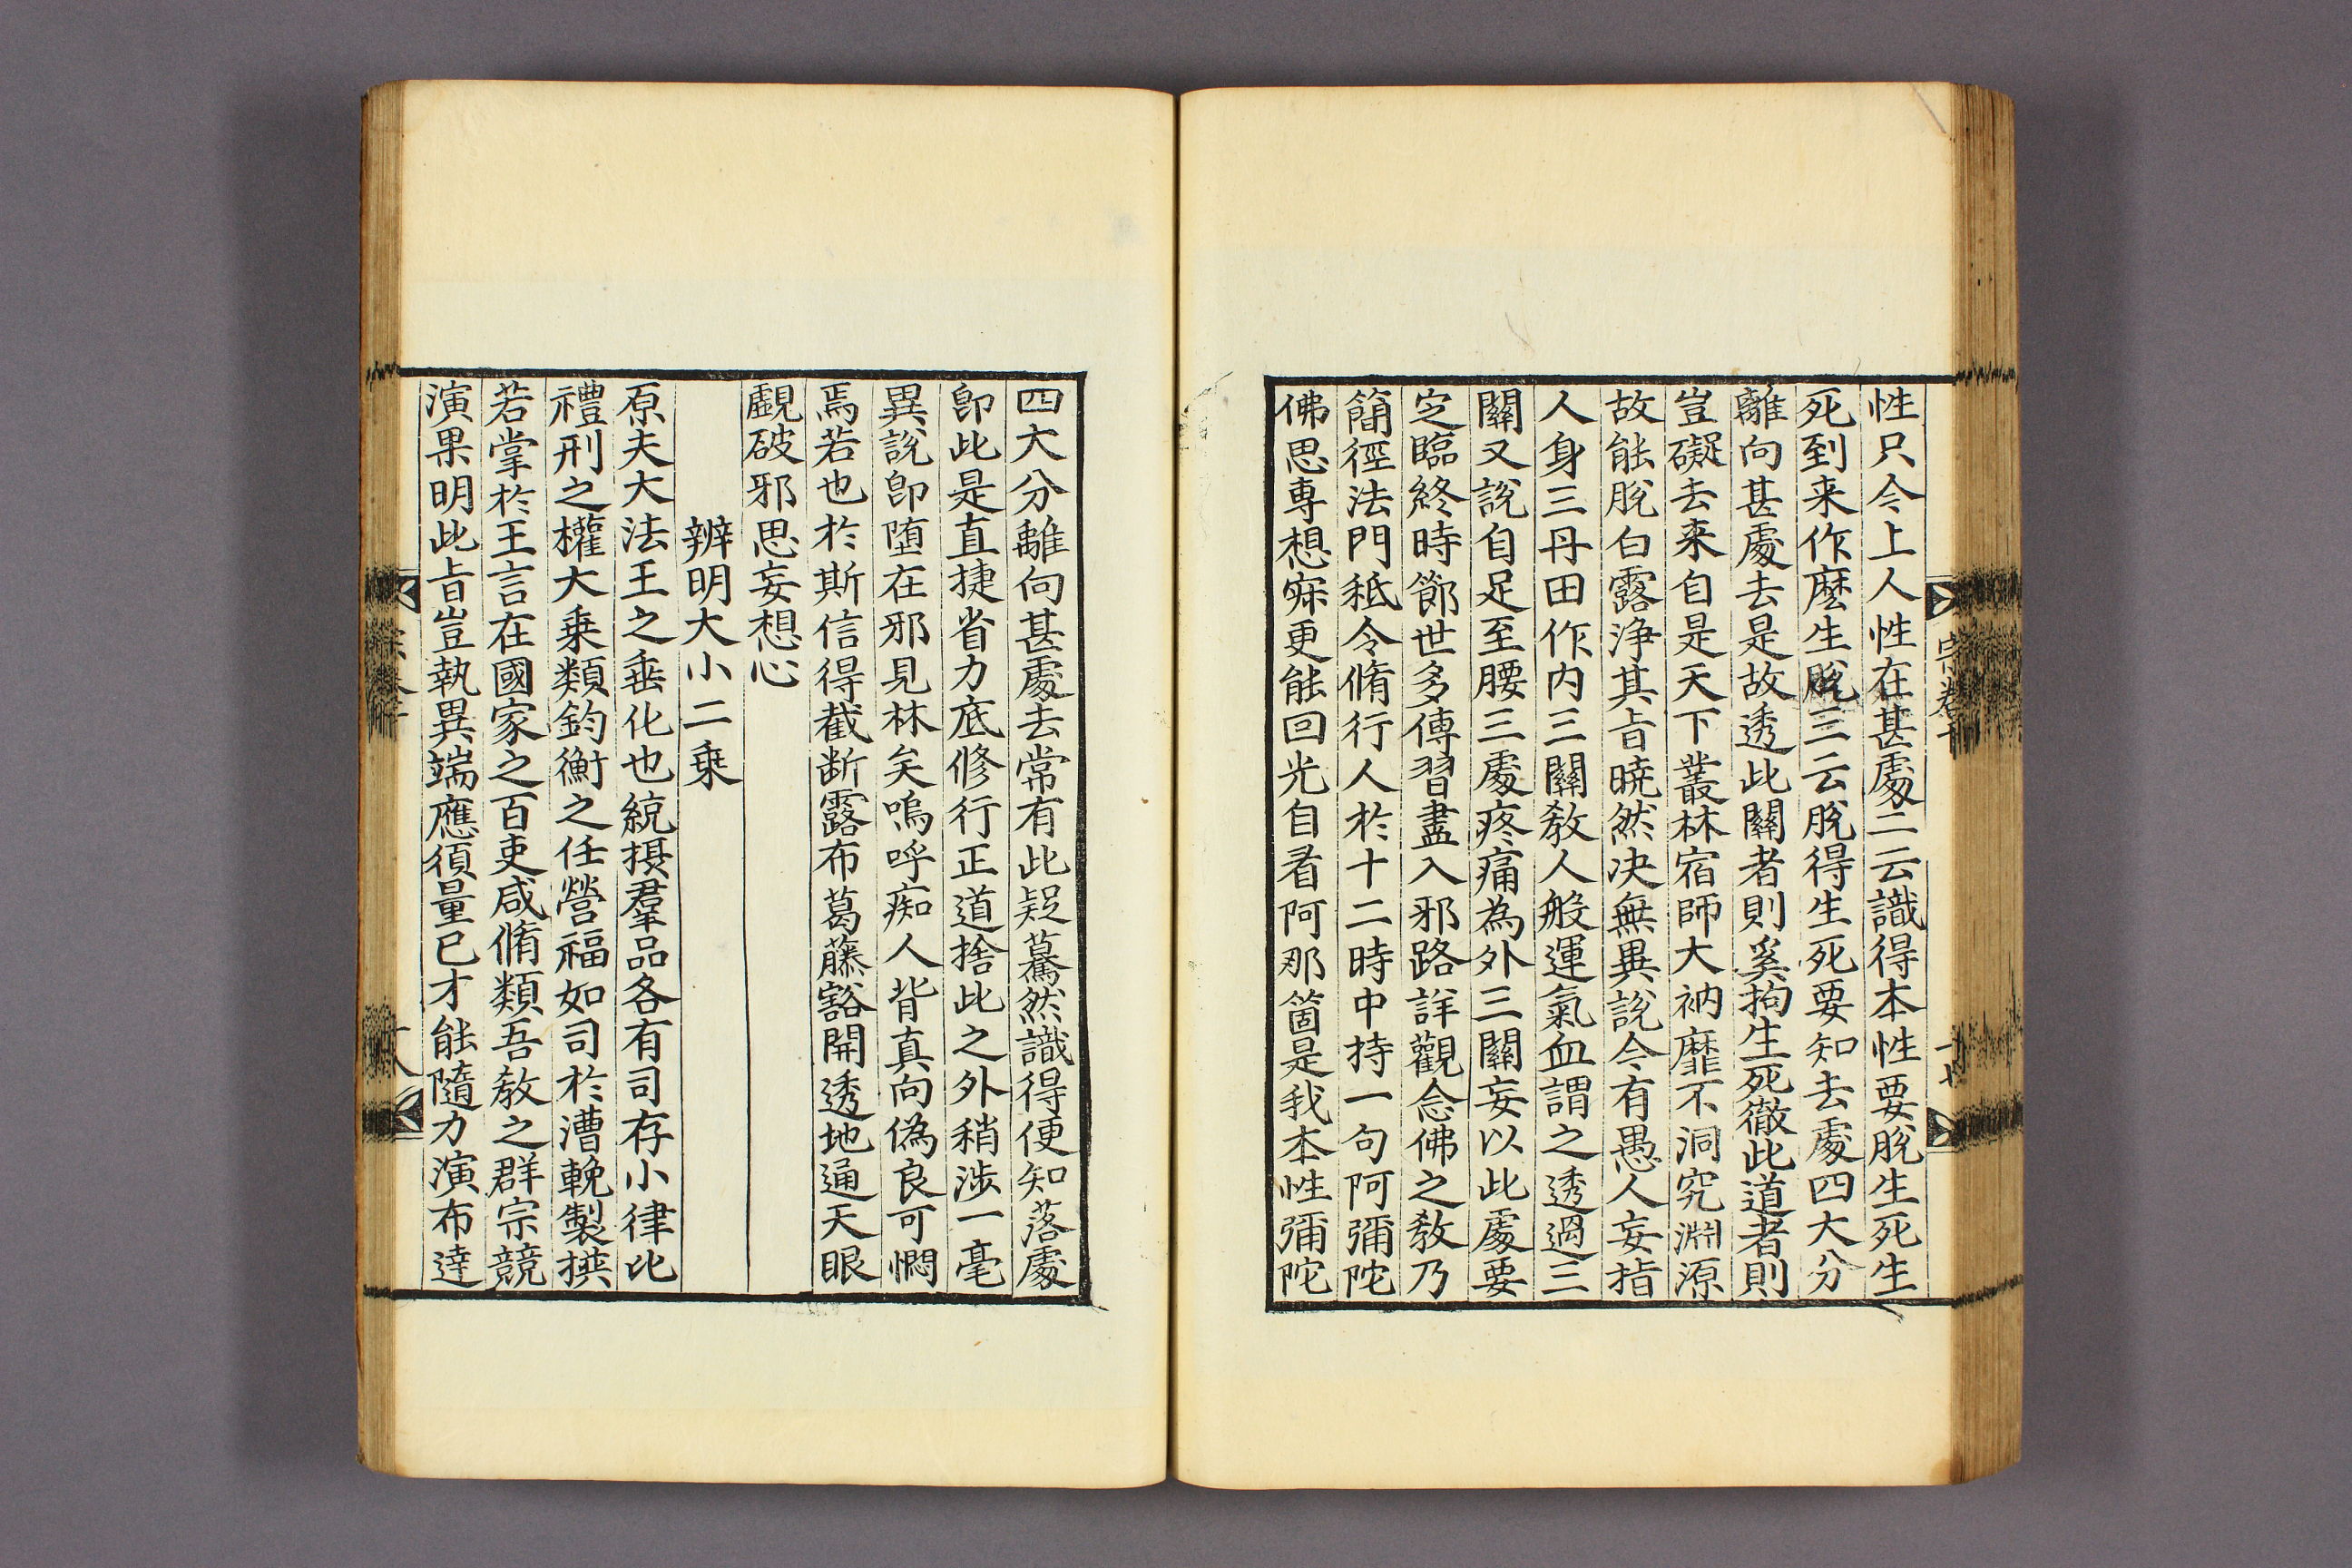 性只今上人性在甚處二云識得本性要脫生死生
死到来作麽生脫三云脫得生死要知去處四大分
離向甚處去是故透此關者則奚拘生死徹此道者則
豈礙去来自是天下叢林宿師大衲靡不洞究淵源
故能脫白露净其㫖曉然决無異說今有愚人妄指
人身三丹田作内三關教人般運氣血謂之透過三
關又說自足至腰三處疼痛為外三關妄以此處要
定臨終時節世多傳習盡入邪路詳觀念佛之教乃
簡徑法門秪令脩行人於十二時中持一句阿彌陀
佛思專想寂更能回光自看阿那箇是我本性彌陀
四大分離向甚處去常有此疑驀然識得便知落處
即此是直捷省力底修行正道捨此之外稍涉一毫
異說即堕在邪見林矣嗚呼痴人背真向偽良可憫
焉若也於斯信得截断露布葛藤豁開透地通天眼
覷破邪思妄想心
辨明大小二乗
原夫大法王之垂化也統摄羣品各有司存小律比
禮刑之權大乗類鈞衡之任營福如司於漕輓製撰
若掌於王言在國家之百吏咸脩類吾教之群宗競
演果明此㫖豈執異端應須量已才能隨力演布達